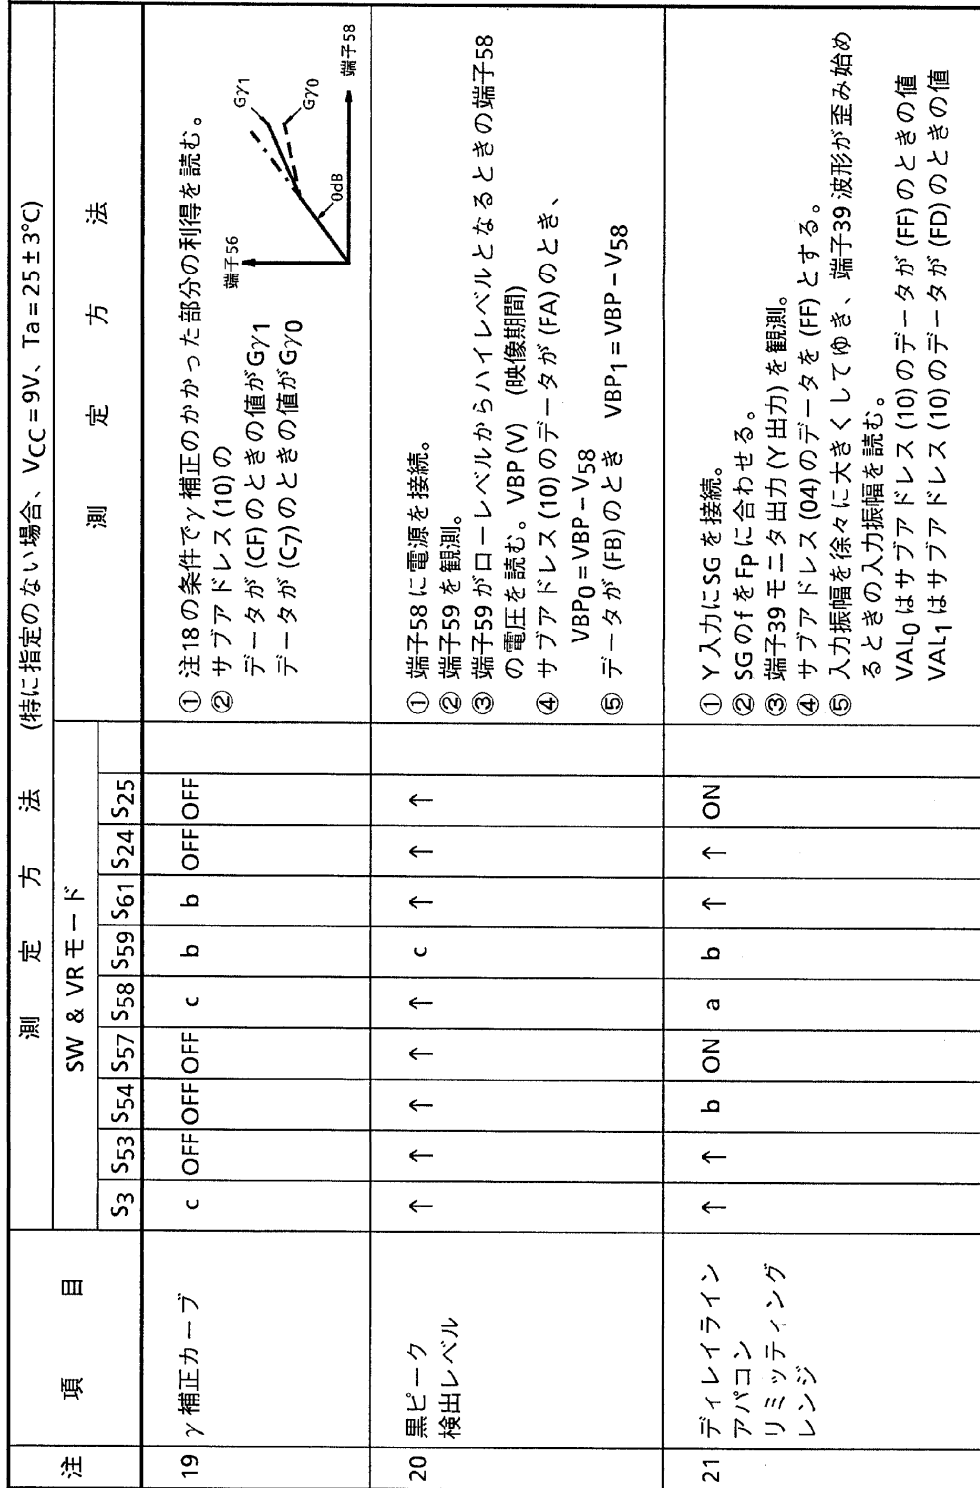 注 項 目 測 定 方 法 (特に指定のない場合、VCC = 9V、Ta = 25 ± 3°C)
SW & VR モード 測 定 方 法
S3 S53 S54 S57 S58 S59 S61 S24 S25
19 γ 補正カーブ c OFF OFF OFF c b b OFF OFF
① 注18の条件でγ 補正のかかった部分の利得を読む。
② サブアドレス (10) の
データが (CF) のときの値がGγ1
データが (C7) のときの値がGγ0
端子56
0dB
Gγ1
Gγ0
端子58
20 黒ピーク
検出レベル
↑ ↑ ↑ ↑ ↑ c ↑ ↑ ↑
① 端子58 に電源を接続。
② 端子59 を観測。
③ 端子59 がローレベルからハイレベルとなるときの端子58
の電圧を読む。VBP (V) (映像期間)
④ サブアドレス (10) のデータが (FA) のとき、
VBP0 = VBP − V58
⑤ データが (FB) のとき VBP1 = VBP − V58
21 ディレイライン
アパコン
リミッティング
レンジ
↑ ↑ b ON a b ↑ ↑ ON
① Y 入力に SG を接続。
② SG の f を Fp に合わせる。
③ 端子39 モニタ出力 (Y 出力) を観測。
④ サブアドレス (04) のデータを (FF) とする。
⑤ 入力振幅を徐々に大きくしてゆき、端子39 波形が歪み始め
るときの入力振幅を読む。
VAL0 はサブアドレス (10) のデータが (FF) のときの値
VAL1 はサブアドレス (10) のデータが (FD) のときの値